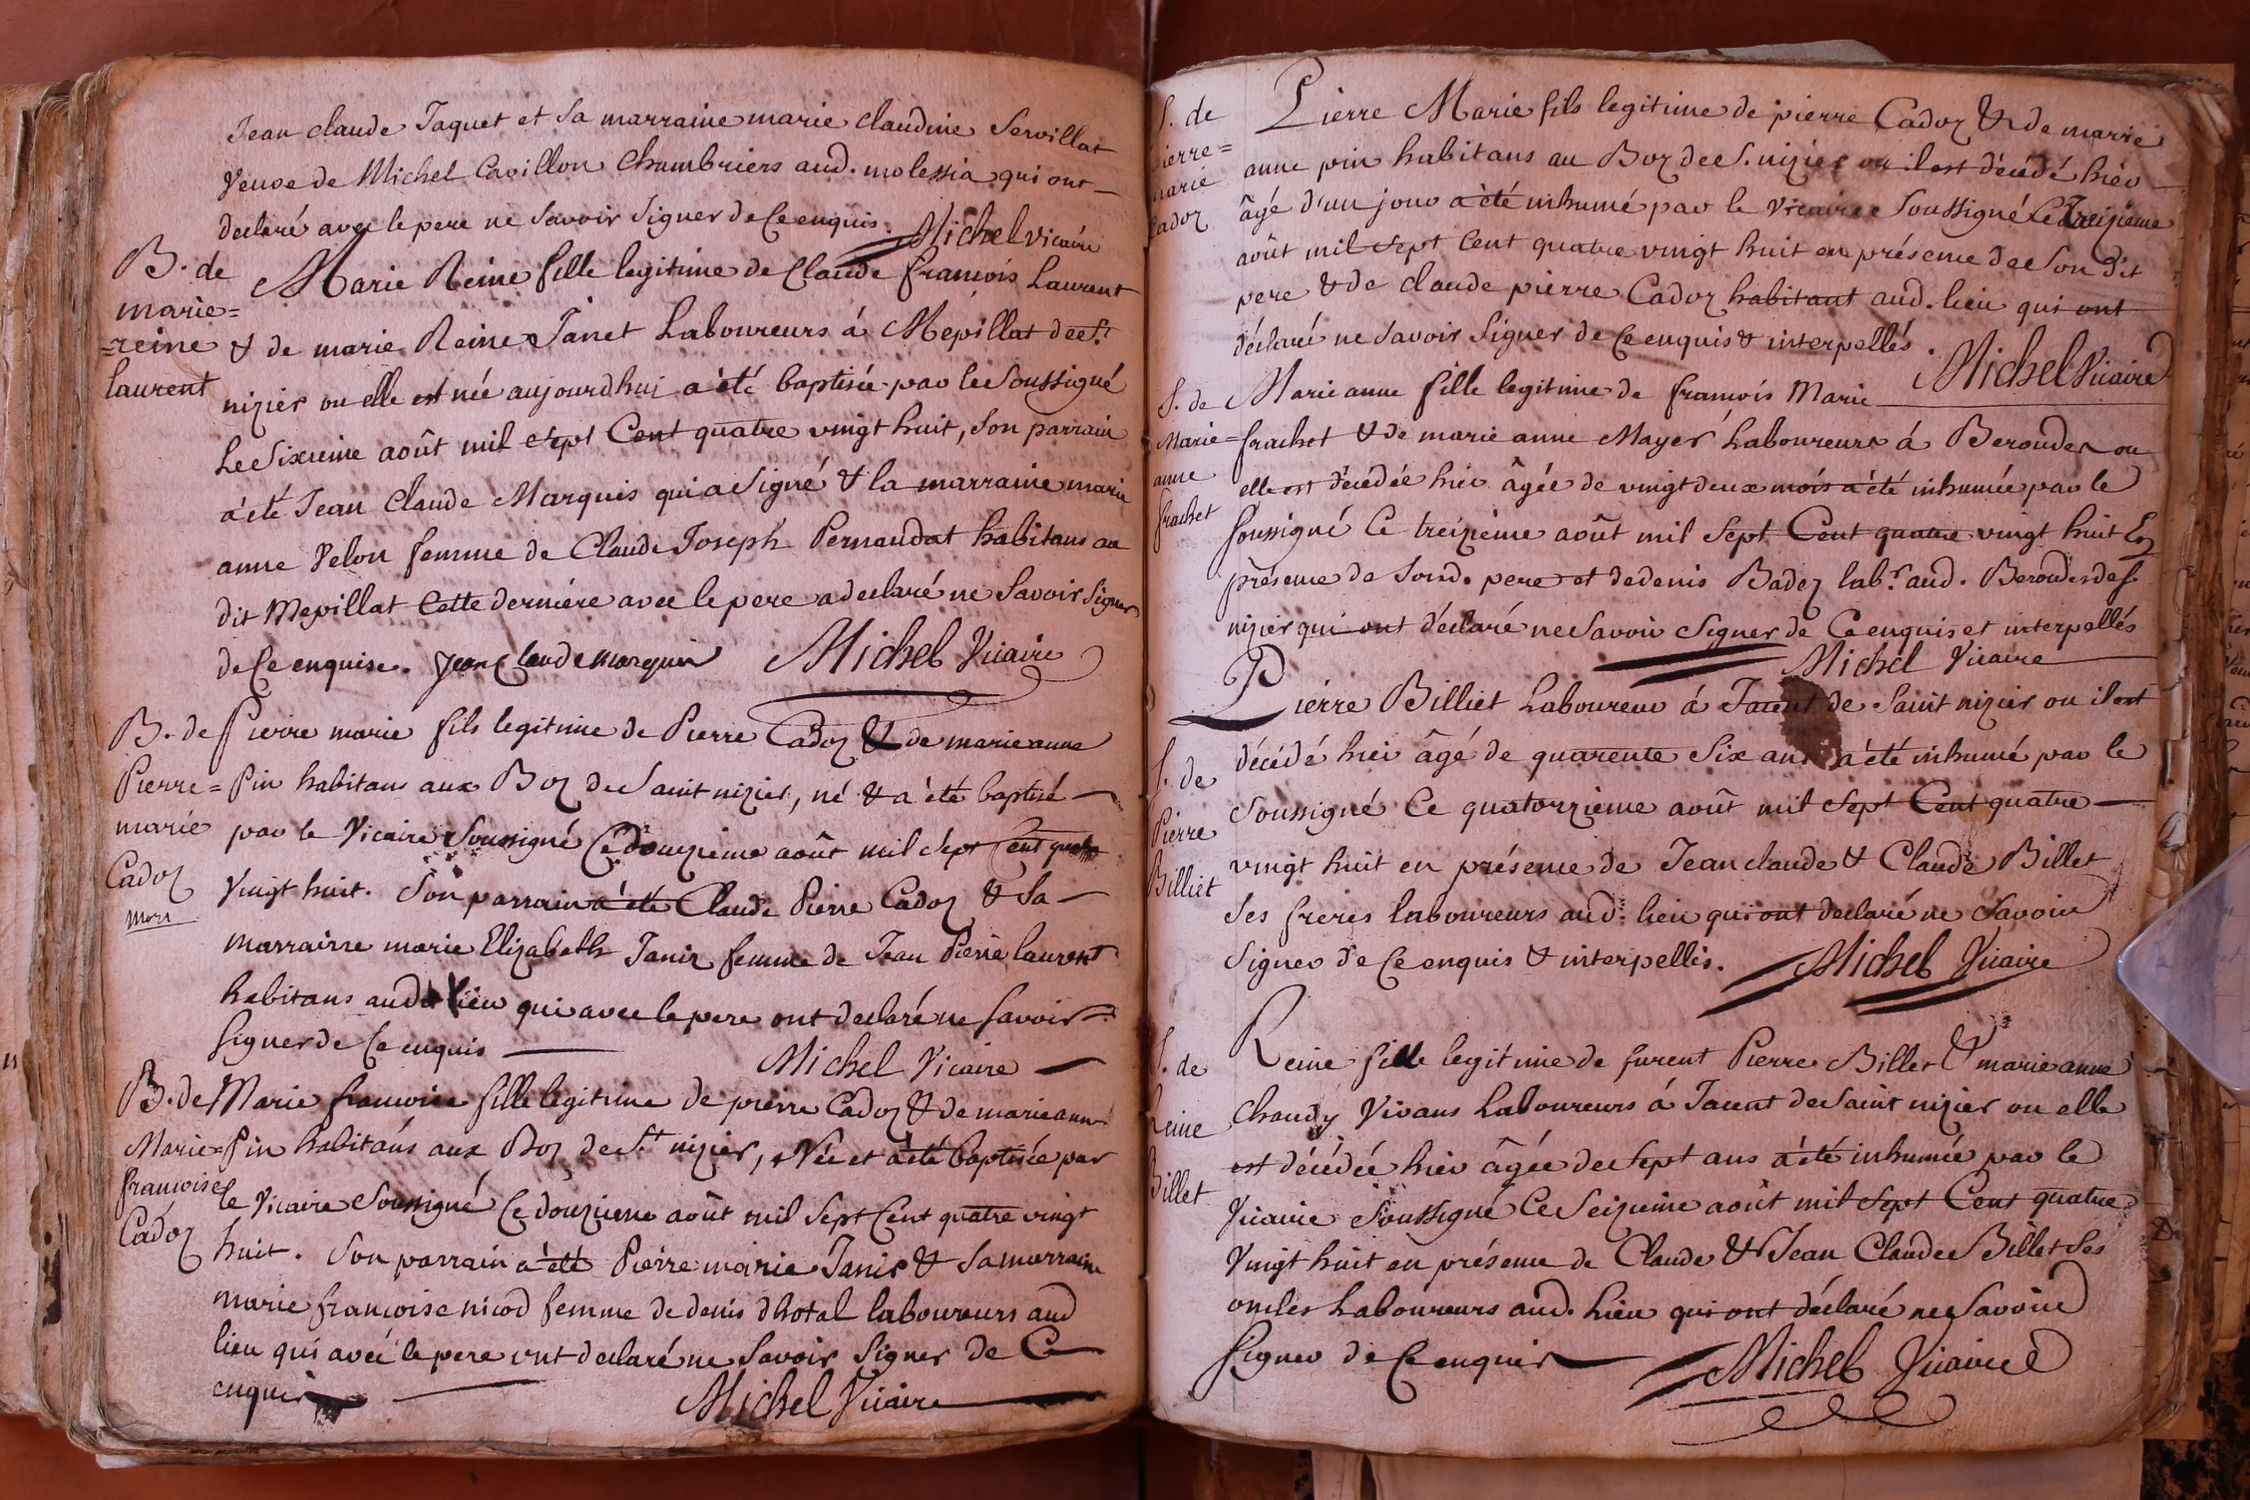 Jean claude Jaquet et sa marraine marie claudine Servillat
veuve de Michel Cavillon Chambriers aud. molessia qui ont
declaré avec le pere ne savoir signer de ce enquis. Michel vicaire
B. de
marie=
=reine
laurent
Marie Reine fille legitime de Claude françois Laurent
& de marie Reine Janet Laboureurs á Mepillat de St
nizier ou elle est née aujourdhui a été baptisée par le soussigné
le sixieme août mil sept Cent quatre vingt huit, son parrain
a été Jean Claude Marquis qui a signé & la marraine marie
anne Velon femme de Claude Joseph Pernaudat habitans au
dit Mepillat Cette derniére avec le pere a declaré ne savoir signer
de ce enquise. jean Claude marquis Michel Vicaire
B. de
Pierre=
marie
Cadoz
mort
Pierre marie fils legitime de Pierre Cadoz & de marie anne
Pin habitans aux Boz de Saint nizier, né & a été baptisé
par le Vicaire soussigné Ce douzieme août mil sept Cent quatre
vingt huit. Son parrain a été Claude Pierre Cadoz & sa
marraine marie Elizabeth Janin femme de Jean Pierre laurent
habitans audit lieu qui avec le pere ont declaré ne savoir
signer de ce enquis
Michel Vicaire
B. de
Marie=
françoise
Cadoz
Marie françoise fille legitime de pierre Cadoz & de marie anne
Pin habitans aux Boz de St nizier, Née et a été baptisée par
le Vicaire soussigné Ce douzieme août mil sept Cent quatre vingt
huit. Son parrain a été Pierre marie Janin & sa marraine
marie françoise nicod femme de denis dhotal laboureurs aud
lieu qui avec le pere ont declaré ne savoir signer de Ce
enquis
Michel Vicaire
S. de
Pierre=
marie
Cadoz
Pierre Marie fils legitime de pierre Cadoz & de marie
anne pin habitans au Boz de S. nizier ou il est décédé hier
âgé d'un jour a été inhumé par le vicaire soussigné Ce treizieme
août mil sept Cent quatre vingt huit en présence de son dit
pere & de claude pierre Cadoz habitant aud. lieu qui ont
déclaré ne savoir signer de Ce enquis & interpellés.
Michel Vicaire
S. de
Marie=
anne
frachet
Marie anne fille legitime de françois Marie
frachet & de marie anne Mayer Laboureurs á Berouder ou
elle est décédée hier âgée de vingt deux mois a été inhumée par le
soussigné Ce treizieme août mil sept Cent quatre vingt huit En
présence de sond. pere et de denis Badoz labr. aud. Berouder de S.
nizier qui ont déclaré ne savoir signer de Ce enquis et interpellés
Michel Vicaire
S. de
Pierre
Billiet
Pierre Billiet Laboureur á de Saint nizier ou il est
décédé hier âgé de quarente six ans a été inhumé par le
soussigné Ce quatorzieme août mil sept Cent quatre
vingt huit en présence de Jean claude & Claude Billet
ses freres laboureurs aud. lieu qui ont declaré ne savoir
signer de Ce enquis & interpellés. Michel Vicaire
S. de
Reine
Billet
Reine fille legitime de furent Pierre Billet & marie anne
Chaudy Vivans Laboureurs á de Saint nizier ou elle
est décédée hier âgée de sept ans a été inhumée par le
Vicaire soussigné Ce seizieme août mil sept Cent quatre
vingt huit en présence de Claude & Jean Claude Billet ses
oncles Laboureurs aud. lieu qui ont déclaré ne savoir
signer de Ce enquis
Michel Vicaire